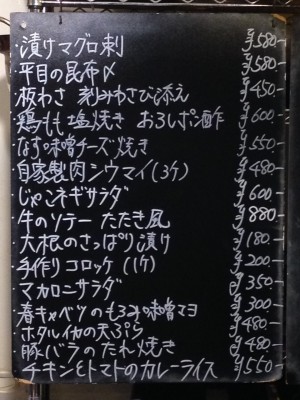 ・漬けマグロ刺 ¥580-
・平目の昆布〆 ¥580-
・板わさ 刻みわさび添え ¥450-
・鶏もも 塩焼き おろしポン酢 ¥600-
・なす味噌チーズ焼き ¥550-
・自家製肉シウマイ(3ケ) ¥480-
・じゃこネギサラダ ¥600-
・牛のソテー たたき風 ¥880-
・大根のさっぱり漬け ¥180-
・手作りコロッケ(1ケ) ¥200-
・マカロニサラダ ¥350-
・春キャベツのもろみ味噌マヨ ¥300-
・ホタルイカの天ぷら ¥480-
・豚バラのたれ焼き ¥480-
・チキンとトマトのカレーライス ¥550-